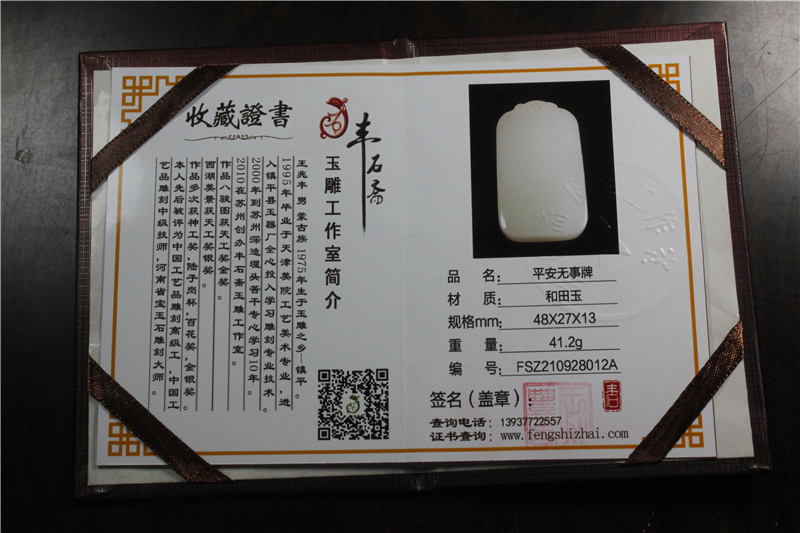 收藏證書
丰石斋
玉雕工作室简介
王兆丰 男 蒙古族 1975年生于玉雕之乡—镇平。
1995年毕业于天津美院工艺美术专业，进
入镇平县玉器厂全心投入学习雕刻专业技术。
2000年到苏州深造埋头苦干专心学习10年。
2010在苏州创办丰石斋玉雕工作室。
作品八骏图获天工奖金奖。
西湖美景获天工奖银奖。
作品多次获神工奖，陆子岗杯，百花奖，金银奖。
本人先后被评为中国工艺品雕刻高级工，中国工
艺品雕刻中级技师，河南省宝玉石雕刻大师。
品 名： 平安无事牌
材 质： 和田玉
规格mm： 48X27X13
重 量： 41.2g
编 号： FSZ210928012A
签名（盖章）
查询电话： 13937722557
证书查询： www.fengshizhai.com